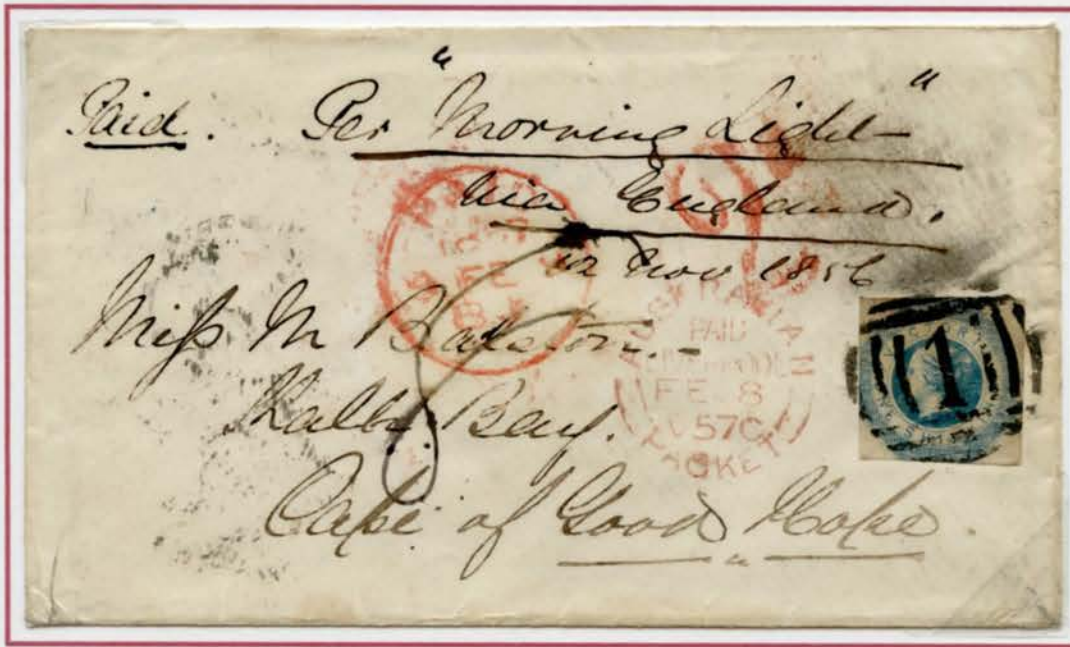 Paid. Per "Morning Light"
via England.
12 Nov 1856
Miss M
Kalk Bay.
Cape of Good Hope.
PAID
FE
8
AUSTRALIAN
PAID
LIVERPOOL
FE 8
57 C
PACKET
1